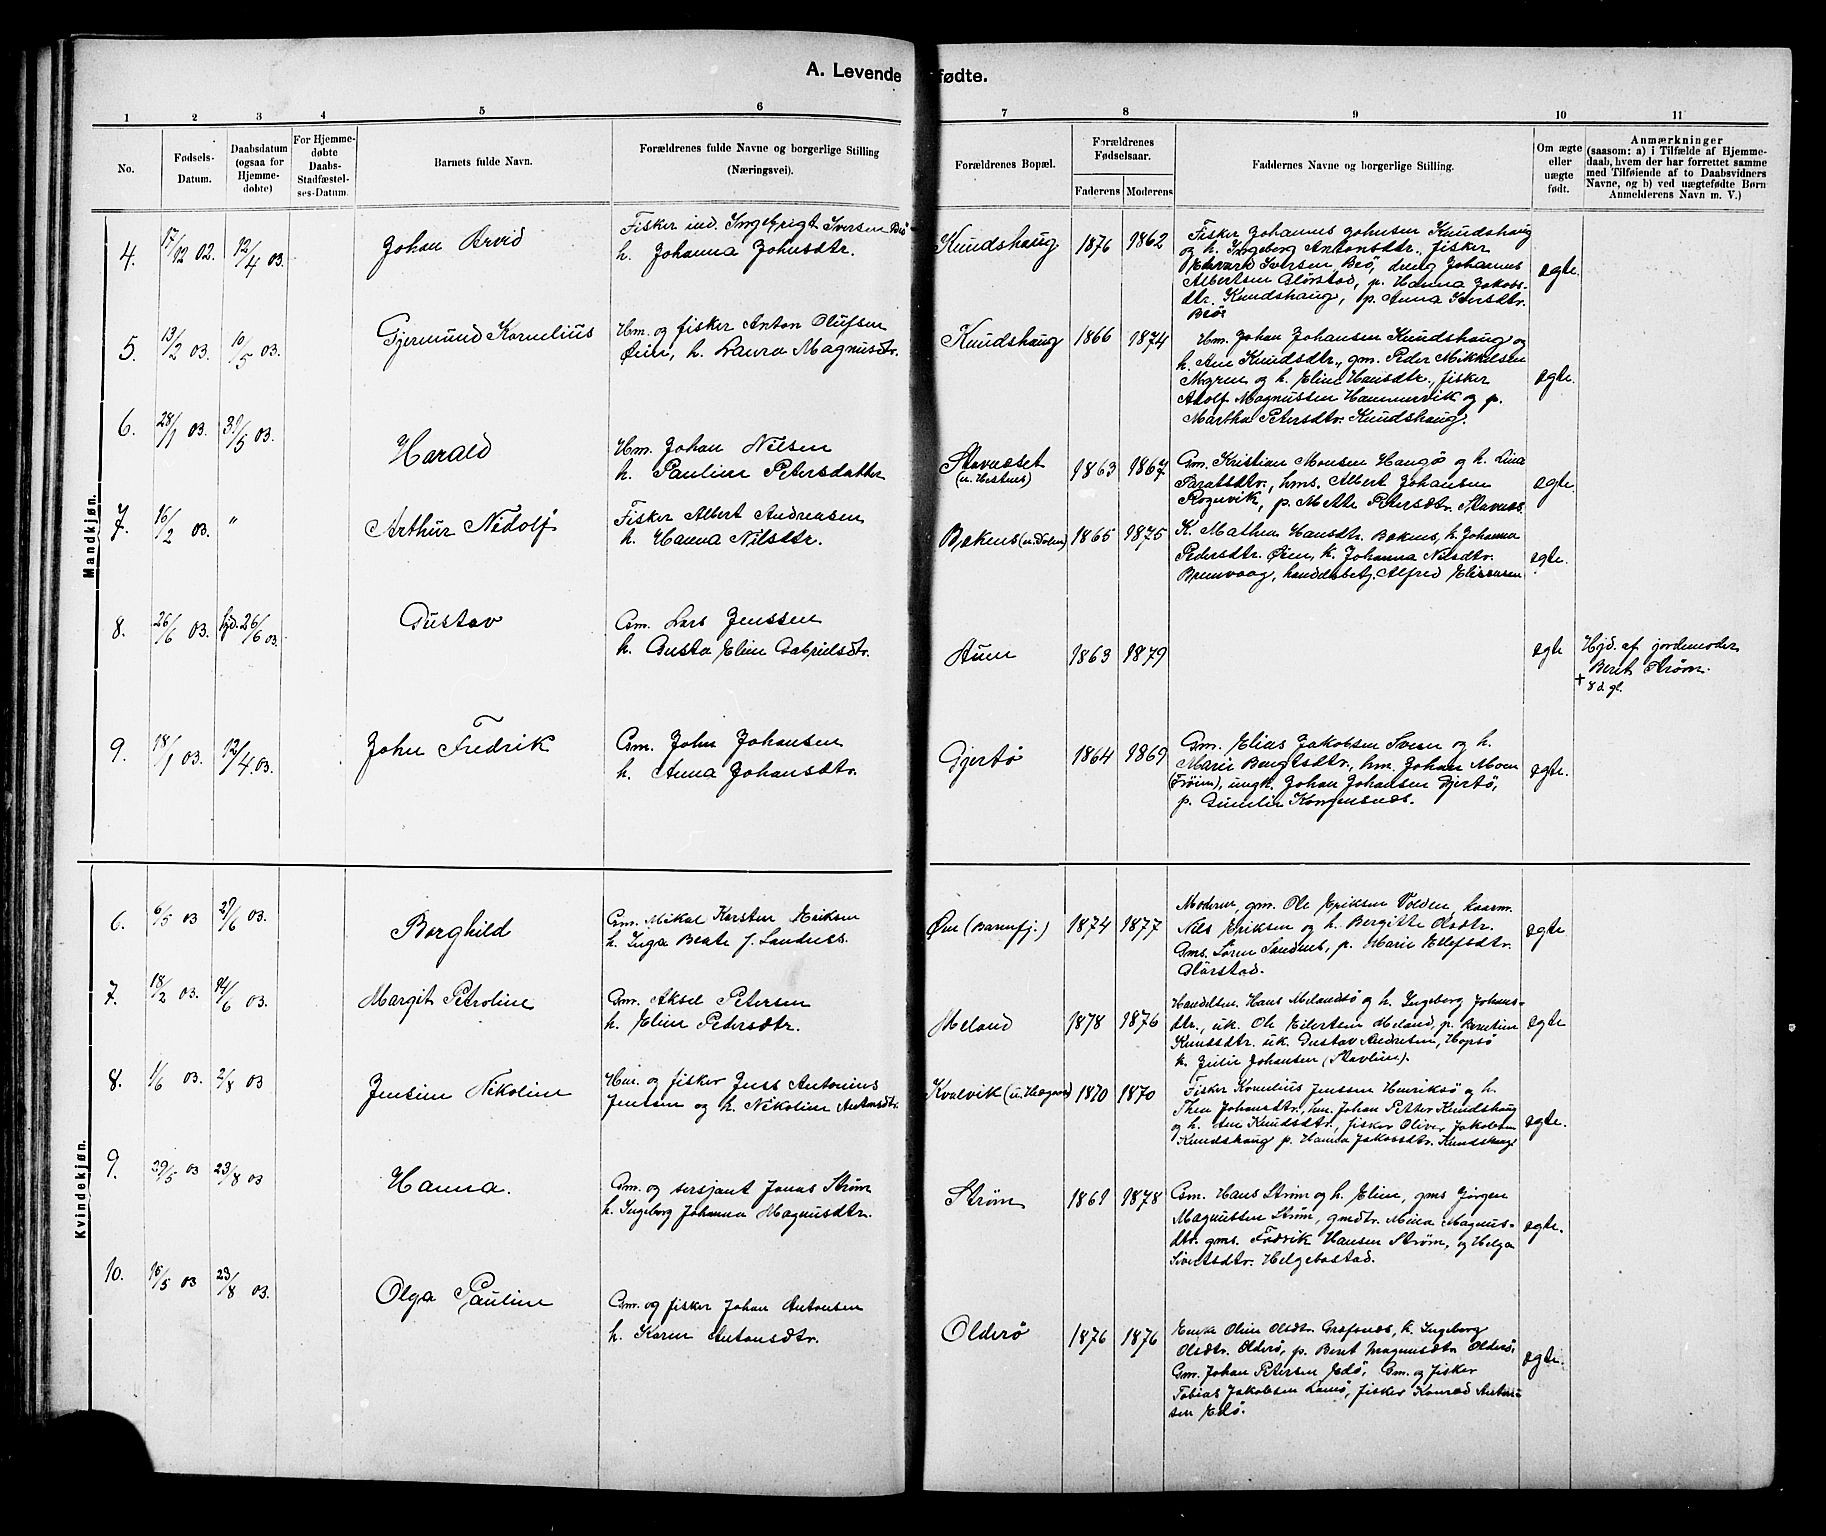 A. Levende fødte.
1 2 3 4 5 6 7 8 9 10 11
No.
Fødsels-
Datum.
Daabsdatum
(ogsaa for
Hjemme-
døbte)
For Hjemme-
døbte
Daabs-
Stadfæstel-
ses-Datum.
Barnets fulde Navn.
Forældrenes fulde Navne og borgerlige Stilling
(Næringsvei).
Forældrenes Bopæl.
Forældrenes
Fødselsaar.
Faderens Moderens
Faddernes Navne og borgerlige Stilling.
Om ægte
eller
uægte
født.
Anmærkninger
(saasom: a) i Tilfælde af Hjemme-
daab, hvem der har forrettet samme
med Tilføiende af to Daabsvidners
Navne, og b) ved uægtefødte Børn
Anmelderens Navn m. V.)
Mandkjøn.
4. 17/12 02. 12/4 03. Johan Arvid
Fisker ind. Ingebrigt Iversen Bø
h. Johanna Johnsdtr.
Knudshaug 1876 1862
Fisker Johannes Johnsen Knudshaug
og h. Ingeberg Antonsdtr., fisker
Edvard Iversen Beø, dreng Johannes
Albertsen Glørstad, p. Hanna Jakobs-
dtr. Knudshaug, p. Anna Iversdtr.
Beø
ægte.
5. 13/2 03. 10/5 03. Gjermund Kornelius
Hm. og fisker Anton Olufsen
Øien, h. Laura Magnusdtr.
Knudshaug 1866 1874
Hm. Johan Johansen Knudshaug og
h. Ane Knudsdtr., gm. Peder Mikkelsen
Myren og h. Eline Hansdtr., fisker
Adolf Magnussen Hammervik og p.
Martha Petersdtr. Knudshaug.
ægte.
6. 28/1 03. 31/5 03. Harald
Hm. Johan Nilsen
h. Pauline Petersdatter
Stavnesset
(u. Hestnes)
1863 1867
Gm. Kristian Monsen Haugø og h. Lina
Taraldsdtr., hms. Albert Johansen
Rognvik, p. Mette Petersdtr. Stavnes.
ægte.
7. 16/2 03. " Arthur Nidolf
Fisker Albert Andreasen
h. Hanna Nilsdtr.
Bekens (u. Dolm) 1865 1875
K. Mathea Hansdtr. Bekens, h. Johanna
Pedersdtr. Øien, k. Johanna Nilsdtr.
Bremvaag, handelsbetj. Alfred Eliassen
ægte.
8. 26/6 03. hjd. 26/6 03. Gustav
Gm. Lars Jenssen
h. Gusta Eline Gabrielsdtr.
Aune 1863 1879
ægte
Hjd. af jordemoder
Berit Strøm.
+ 8 d. gl.
9. 18/1 03. 12/4 03. John Fredrik
Gm. John Johansen
h. Anna Johansdtr.
Gjertø 1864 1869
Gm. Elias Jakobsen Sveen og h.
Marie Bengtsdtr., hm. Johan Moen
(Frøien), ungk. Johan Johansen Gjertø,
p. Gunelie Kongensnes.
ægte.
Kvindekjøn.
6. 6/5 03 29/6 03. Borghild
Gm. Mikal Karsten Eriksen
h. Inga Beate f. Sandnes.
Øien (Barmfj.) 1874 1877
Moderen, gm. Ole Eriksen Volden, kaarm.
Nils Eriksen og h. Bergitte Olsdtr.
Gms. Søren Sandnes, p. Marie Elefsdtr.
Glørstad.
ægte.
7. 18/2 03. 14/6 03. Margit Petroline
Gm. Aksel Petersen
h. Eline Pedersdtr.
Meland 1878 1876
Handelsm. Hans Melandsø og h. Ingeborg Johans-
dtr., uk. Ole Eilertsen Meland, p. Berntine
Knudsdtr. uk. Gustav Andresen, Hopsø
k. Julie Johansen (Stavlien).
ægte
8. 1/6 03. 2/8 03 Jensine Nikoline
Hm. og fisker Jens Antonius
Jensen og h. Nikoline Antonsdtr.
Kvalvik (u. Hægaas) 1870 1870
Fisker Kornelius Jensen Henriksø og h.
Thea Johansdtr., hm. Johan Petter Knudshaug
og h. Ane Knudsdtr., fisker Oliver Jakobsen
Knudshaug p. Hanna Jakobsdtr. Knudshaug
ægte.
9. 29/5 03 23/8 03 Hanna.
Gm. og sersjant Jonas Strøm
h. Ingeborg Johanna Magnusdtr.
Strøm 1861 1878
Gm. Hans Strøm og h. Eline, gms Jørgen
Magnussen Strøm, gmdtr. Mina Magnus-
dtr. gms. Fredrik Hansen Strøm, og Helga
Sivertsdtr. Helgebostad.
ægte.
10. 15/5 03 23/8 03. Olga Pauline
Gm. og fisker Johan Antonsen
h. Karen Antonsdtr.
Olderø 1876 1876
Enke Oline Olsdtr. Græfsnes, k. Ingeborg
Olsdtr. Olderø, p. Berit Magnusdtr. Olderø,
Gm. Johan Petersen Edø, Gm. og fisker
Tobias Jakobsen Lamø, fisker Konrad Anton-
sen Edø.
ægte.